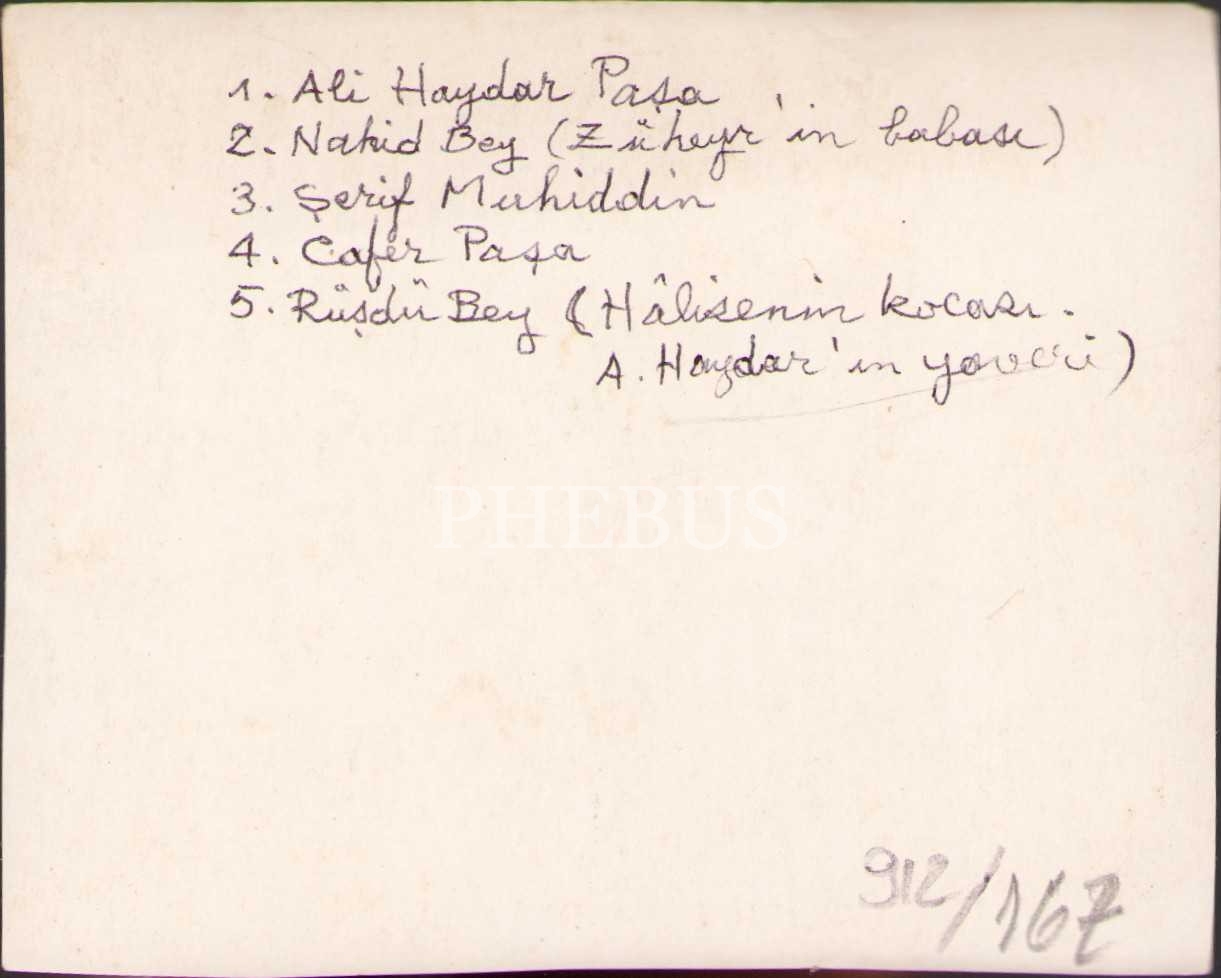 1. Ali Haydar Paşa
2. Nahid Bey (Züheyr'in babası)
3. Şerif Muhiddin
4. Cafer Paşa
5. Rüşdü Bey (Hâlisenin kocası.
A. Haydar'ın yaveri)
PHEBUS
912/167